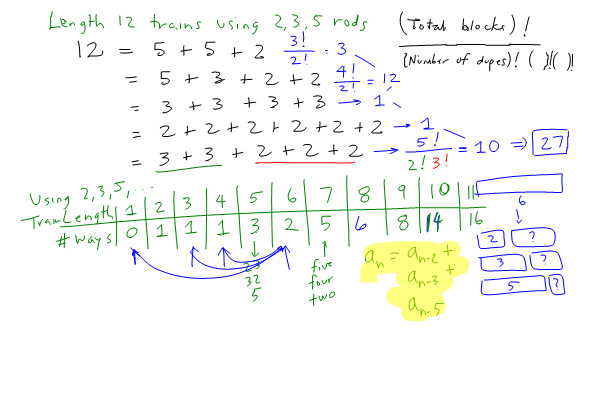 Length 12 trains using 2,3,5 rods
(Total blocks)!
(Number of dupes)! ( )!( )!
12 = 5 + 5 + 2 3!/2! = 3
= 5 + 3 + 2 + 2 4!/2! = 12
= 3 + 3 + 3 + 3 → 1
= 2 + 2 + 2 + 2 + 2 + 2 → 1
= 3 + 3 + 2 + 2 + 2 → 5!/2! 3! = 10 ⇒ 27
Using 2,3,5,...
Train Length 1 2 3 4 5 6 7 8 9 10 11
# ways 0 1 1 1 3 2 5 6 8 14 16
6
2 ?
3 ?
5 ?
23
32
5
five
four
two
aₙ = aₙ₋₂ +
aₙ₋₃ +
aₙ₋₅